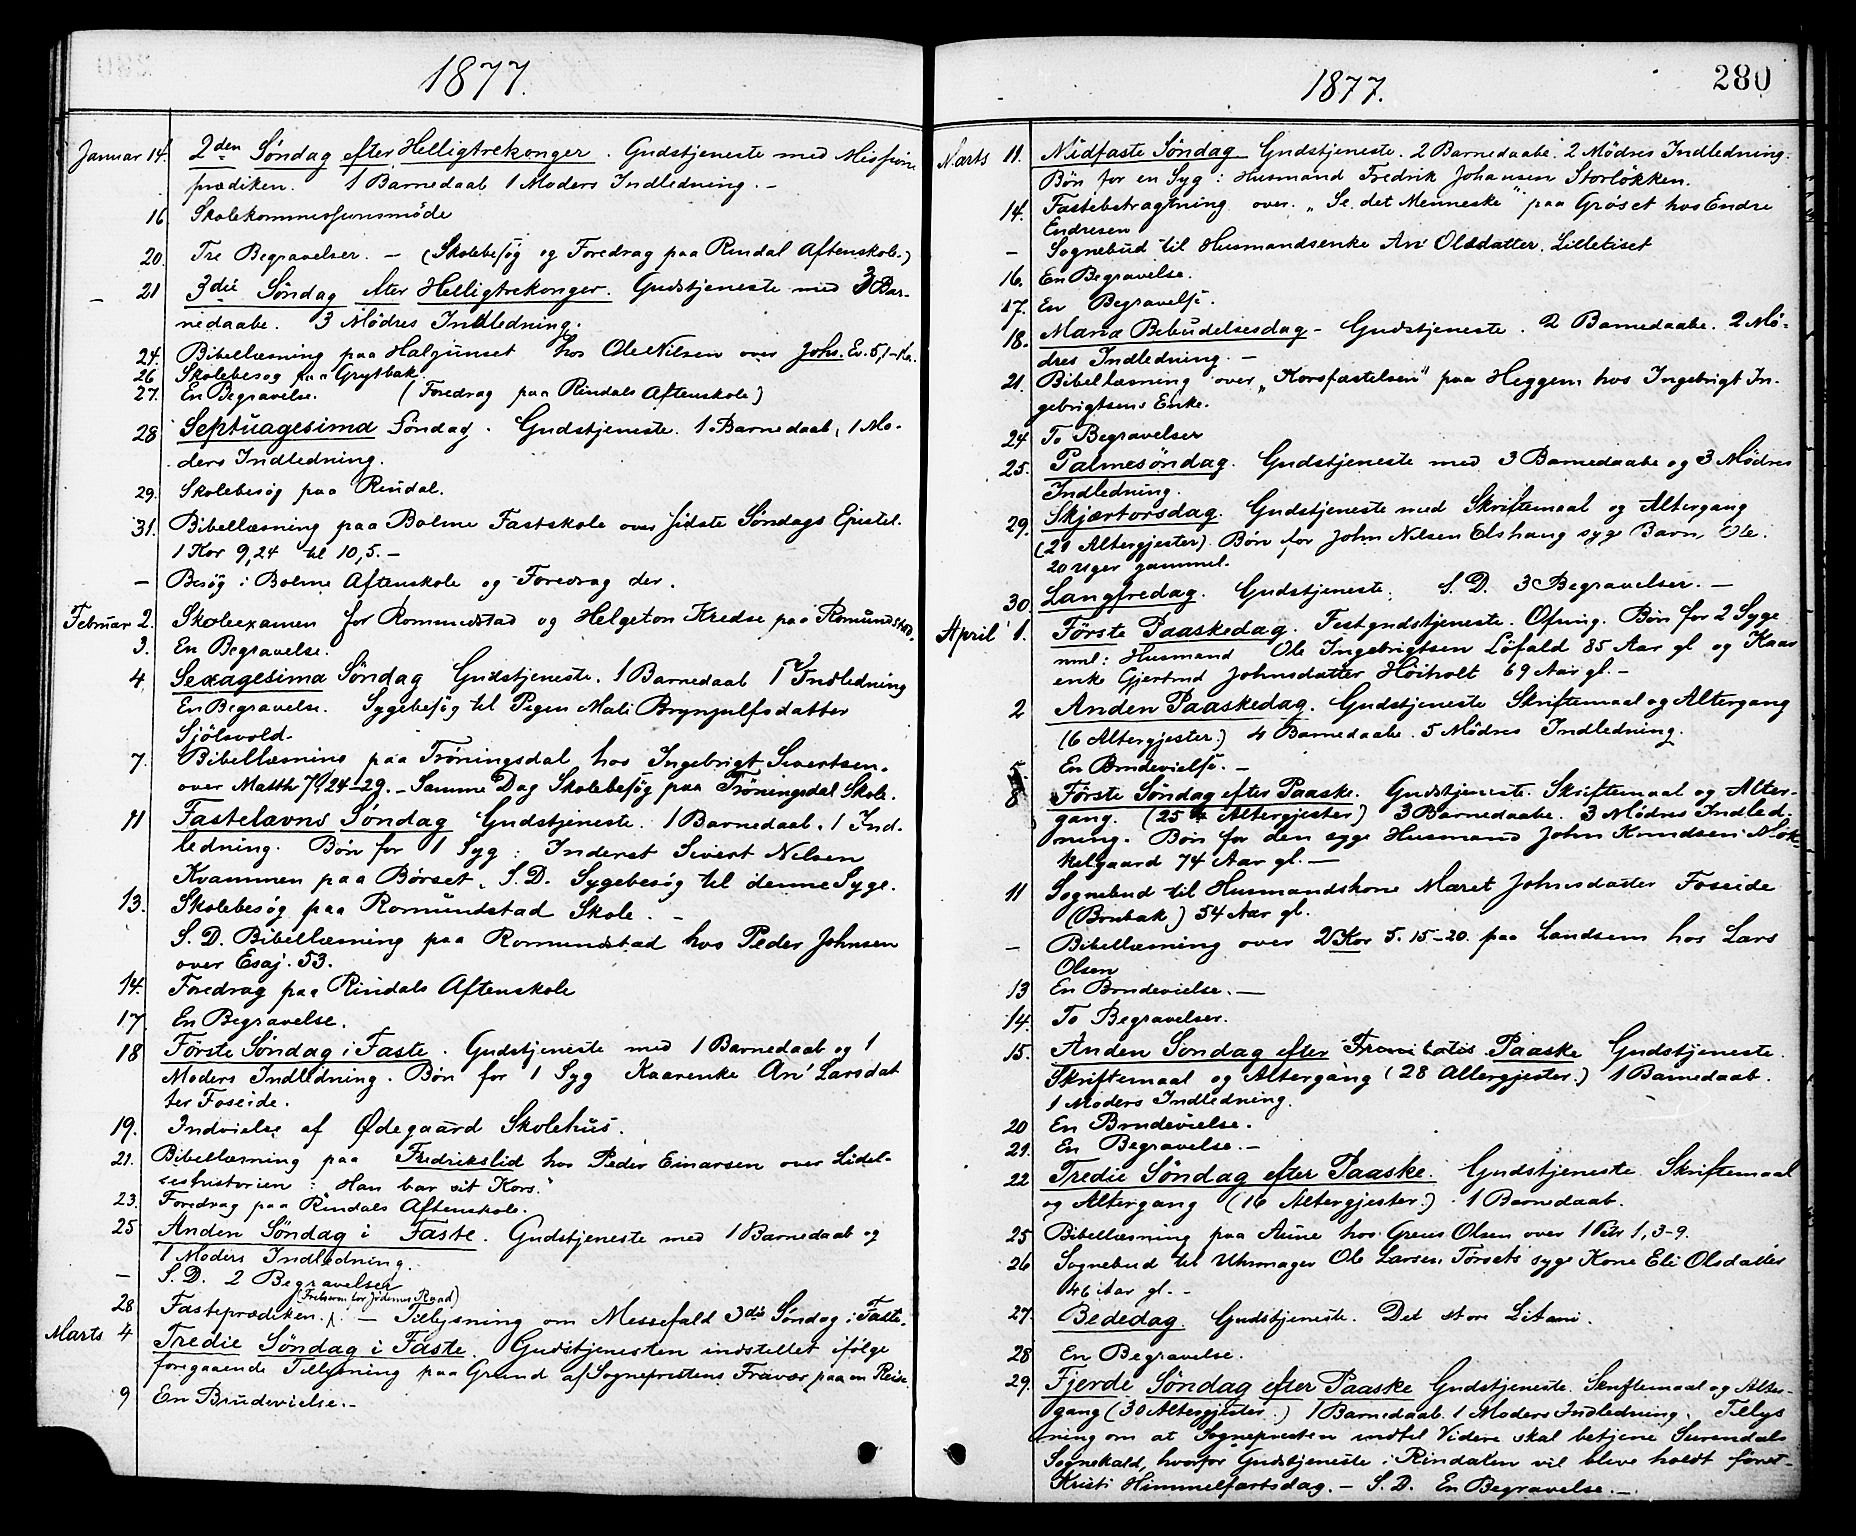 1877.
Januar 14. 2den Søndag efter Helligtrekonger. Gudstjeneste med Missions
prædiken. 1 Barnedaab 1 Moders Indledning. -
16 Skolekommissionsmøde
20. Tre Begravelser. - (Skolebesøg og Foredrag paa Rindal Aftenskole.)
- 21 3die Søndag efter Helligtrekonger. Gudstjeneste med 3 Bar-
nedaabe. 3 Mødres Indledning.
24. Bibellæsning paa Halgunset hos Ole Nilsen over Johs. Ev. 5,1-
26 Skolebesøg paa Grytbak.
27. En Begravelse. (Foredrag paa Rindals Aftenskole)
28 Septuagesima Søndag. Gudstjeneste. 1 Barnedaab, 1 Mo-
ders Indledning.
29. Skolebesøg paa Rindal.
31. Bibellæsning paa Bolme Fastskole over sidste Søndags Epistel.
1 Kor 9,24 til 10,5. -
- Besøg i Bolme Aftenskole og Foredrag der.
Februar 2. Skoleexamen for Romundstad og Helgeton Kredse paa Romundstad.
3. En Begravelse.
4 Sexagesima Søndag Gudstjeneste. 1 Barnedaab 1 Indledning
En Begravelse. Sygebesøg til Pigen Mali Brynjulfsdatter
Sjølsvold.
7. Bibellæsning paa Trøningsdal hos Ingebrigt Sivertsen.
over Matth 7, 24-29. - Samme Dag Skolebesøg paa Trøningsdal Skole.
11 Fastelavns Søndag Gudstjeneste. 1 Barnedaab. 1 Ind-
ledning. Bøn for 1 Syg: Inderst Sivert Nilsen
Kvammen paa Børset. S.D. Sygebesøg til denne Syge.
13. Skolebesøg paa Romundstad Skole. -
S.D. Bibellæsning paa Romundstad hos Peder Johnsen
over Esaj. 53.
14. Foredrag paa Rindals Aftenskole
17. En Begravelse.
18 Første Søndag i Faste. Gudstjeneste med 1 Barnedaab og 1
Moders Indledning. Bøn for 1 Syg Kaarenke An' Larsdat
ter Foseide.
19. Indvielse af Ødegaard Skolehus.
21. Bibellæsning paa Fredrikslid hos Peder Einarsen over Lidel-
seshistorien: "Han bar sit Kors."
23. Foredrag paa Rindals Aftenskole.
25 Anden Søndag i Faste. Gudstjeneste med 1 Barnedaab og
1 Moders Indledning.
- S.D. 2 Begravelser
(Frelseren for Jødernes Raad)
28 Fasteprædiken. - Tillysning om Messefald 3die Søndag i Faste.
Marts 4 Tredie Søndag i Faste. Gudstjenesten indstillet ifølge
foregaaende Tillysning paa Grund af Sogneprestens Fravær paa en Reise.
9 En Brudevielse. -
1877.
280
Marts 11. Midfaste Søndag Gudstjeneste. 2 Barnedaabe. 2 Mødres Indledning.
Bøn for en Syg: Husmand Fredrik Johansen Storløkken.
14. Fastebetragtning over "Se det Menneske" paa Grøset hos Endre
Endresen
- Sognebud til Husmandsenke An' Olsdatter Lilletiset
16. En Begravelse.
17. En Begravelse.
18. Mariæ Bebudelsesdag - Gudstjeneste. 2 Barnedaabe. 2 Mø-
dres Indledning. -
21. Bibellæsning over "Korsfæstelsen" paa Heggem hos Ingebrigt In-
gebrigtsens Enke.
24 To Begravelser
25. Palmesøndag. Gudstjeneste med 3 Barnedaabe og 3 Mødres
Indledning.
29. Skjærtorsdag. Gudstjeneste med Skriftemaal og Altergang
(29 Altergjester). Bøn for John Nilsen Elshaug syge Barn, Ole.
20 uger gammel.
30. Langfredag. Gudstjeneste. S.D. 3 Begravelser. -
April 1. Første Paaskedag. Festgudstjeneste. Ofring. Bøn for 2 Syge
nml: Husmand Ole Ingebrigtsen Løfald 85 Aar gl og Kaar
enke Gjertrud Johnsdatter Høiholt 69 Aar gl. -
2 Anden Paaskedag. Gudstjeneste Skriftemaal og Altergang
(6 Altergjester.) 4 Barnedaabe. 5 Mødres Indledning.
5. En Brudevielse. -
8 Første Søndag efter Paaske. Gudstjeneste. Skriftemaal og Alter-
gang. (25 Altergjester) 3 Barnedaabe. 3 Mødres Indled-
ning. Bøn for den syge Husmand John Knudsen Møk-
kelgaard 74 Aar gl. -
11 Sognebud til Husmandskone Maret Johnsdatter Foseide
(Brubak) 54 Aar gl.
- Bibellæsning over 2 Kor 5. 15-20. paa Landsem hos Lars
Olsen
13 En Brudevielse. -
14. To Begravelser.
15. Anden Søndag efter Trinitatis Paaske Gudstjeneste.
Skriftemaal og Altergang (28 Altergjester.) 1 Barnedaab.
1 Moders Indledning.
20 En Brudevielse.
21. En Begravelse. -
22 Tredie Søndag efter Paaske. Gudstjeneste Skriftemaal
og Altergang (16 Altergjester.) 1 Barnedaab.
25 Bibellæsning paa Aune hos Greus Olsen over 1 Petr 1, 3-9.
26 Sognebud til Uhrmager Ole Larsen Tørsets syge Kone Eli Olsdatter
46 Aar gl. -
27. Bededag. Gudstjeneste. Det store Litani.
28 En Begravelse.
29. Fjerde Søndag efter Paaske Gudstjeneste. Skriftemaal og Alter-
gang (30 Altergjester.) 1 Barnedaab. 1 Moders Indledning. Tillys
ning om at Sognepresten indtil Videre skal betjene Surendals
Sognekald, hvorfor Gudstjeneste i Rindalen vil blive holdt først
Kristi Himmelfartsdag. - S.D. En Begravelse. -